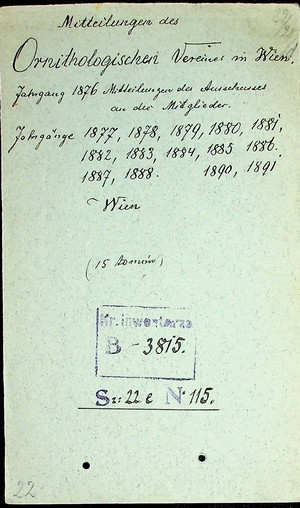 Mitteilungen des
Ornithologischen Vereines in Wien.
Jahrgang 1876 Mitteilungen des Ausschusses
an die Mitglieder.
Jahrgänge 1877, 1878, 1879, 1880, 1881,
1882, 1883, 1884, 1885 1886.
1887, 1888. 1890, 1891
Wien
(15 tomów)
Nr. inwentarza
B - 3815.
Sz: 22 e No 115.
22